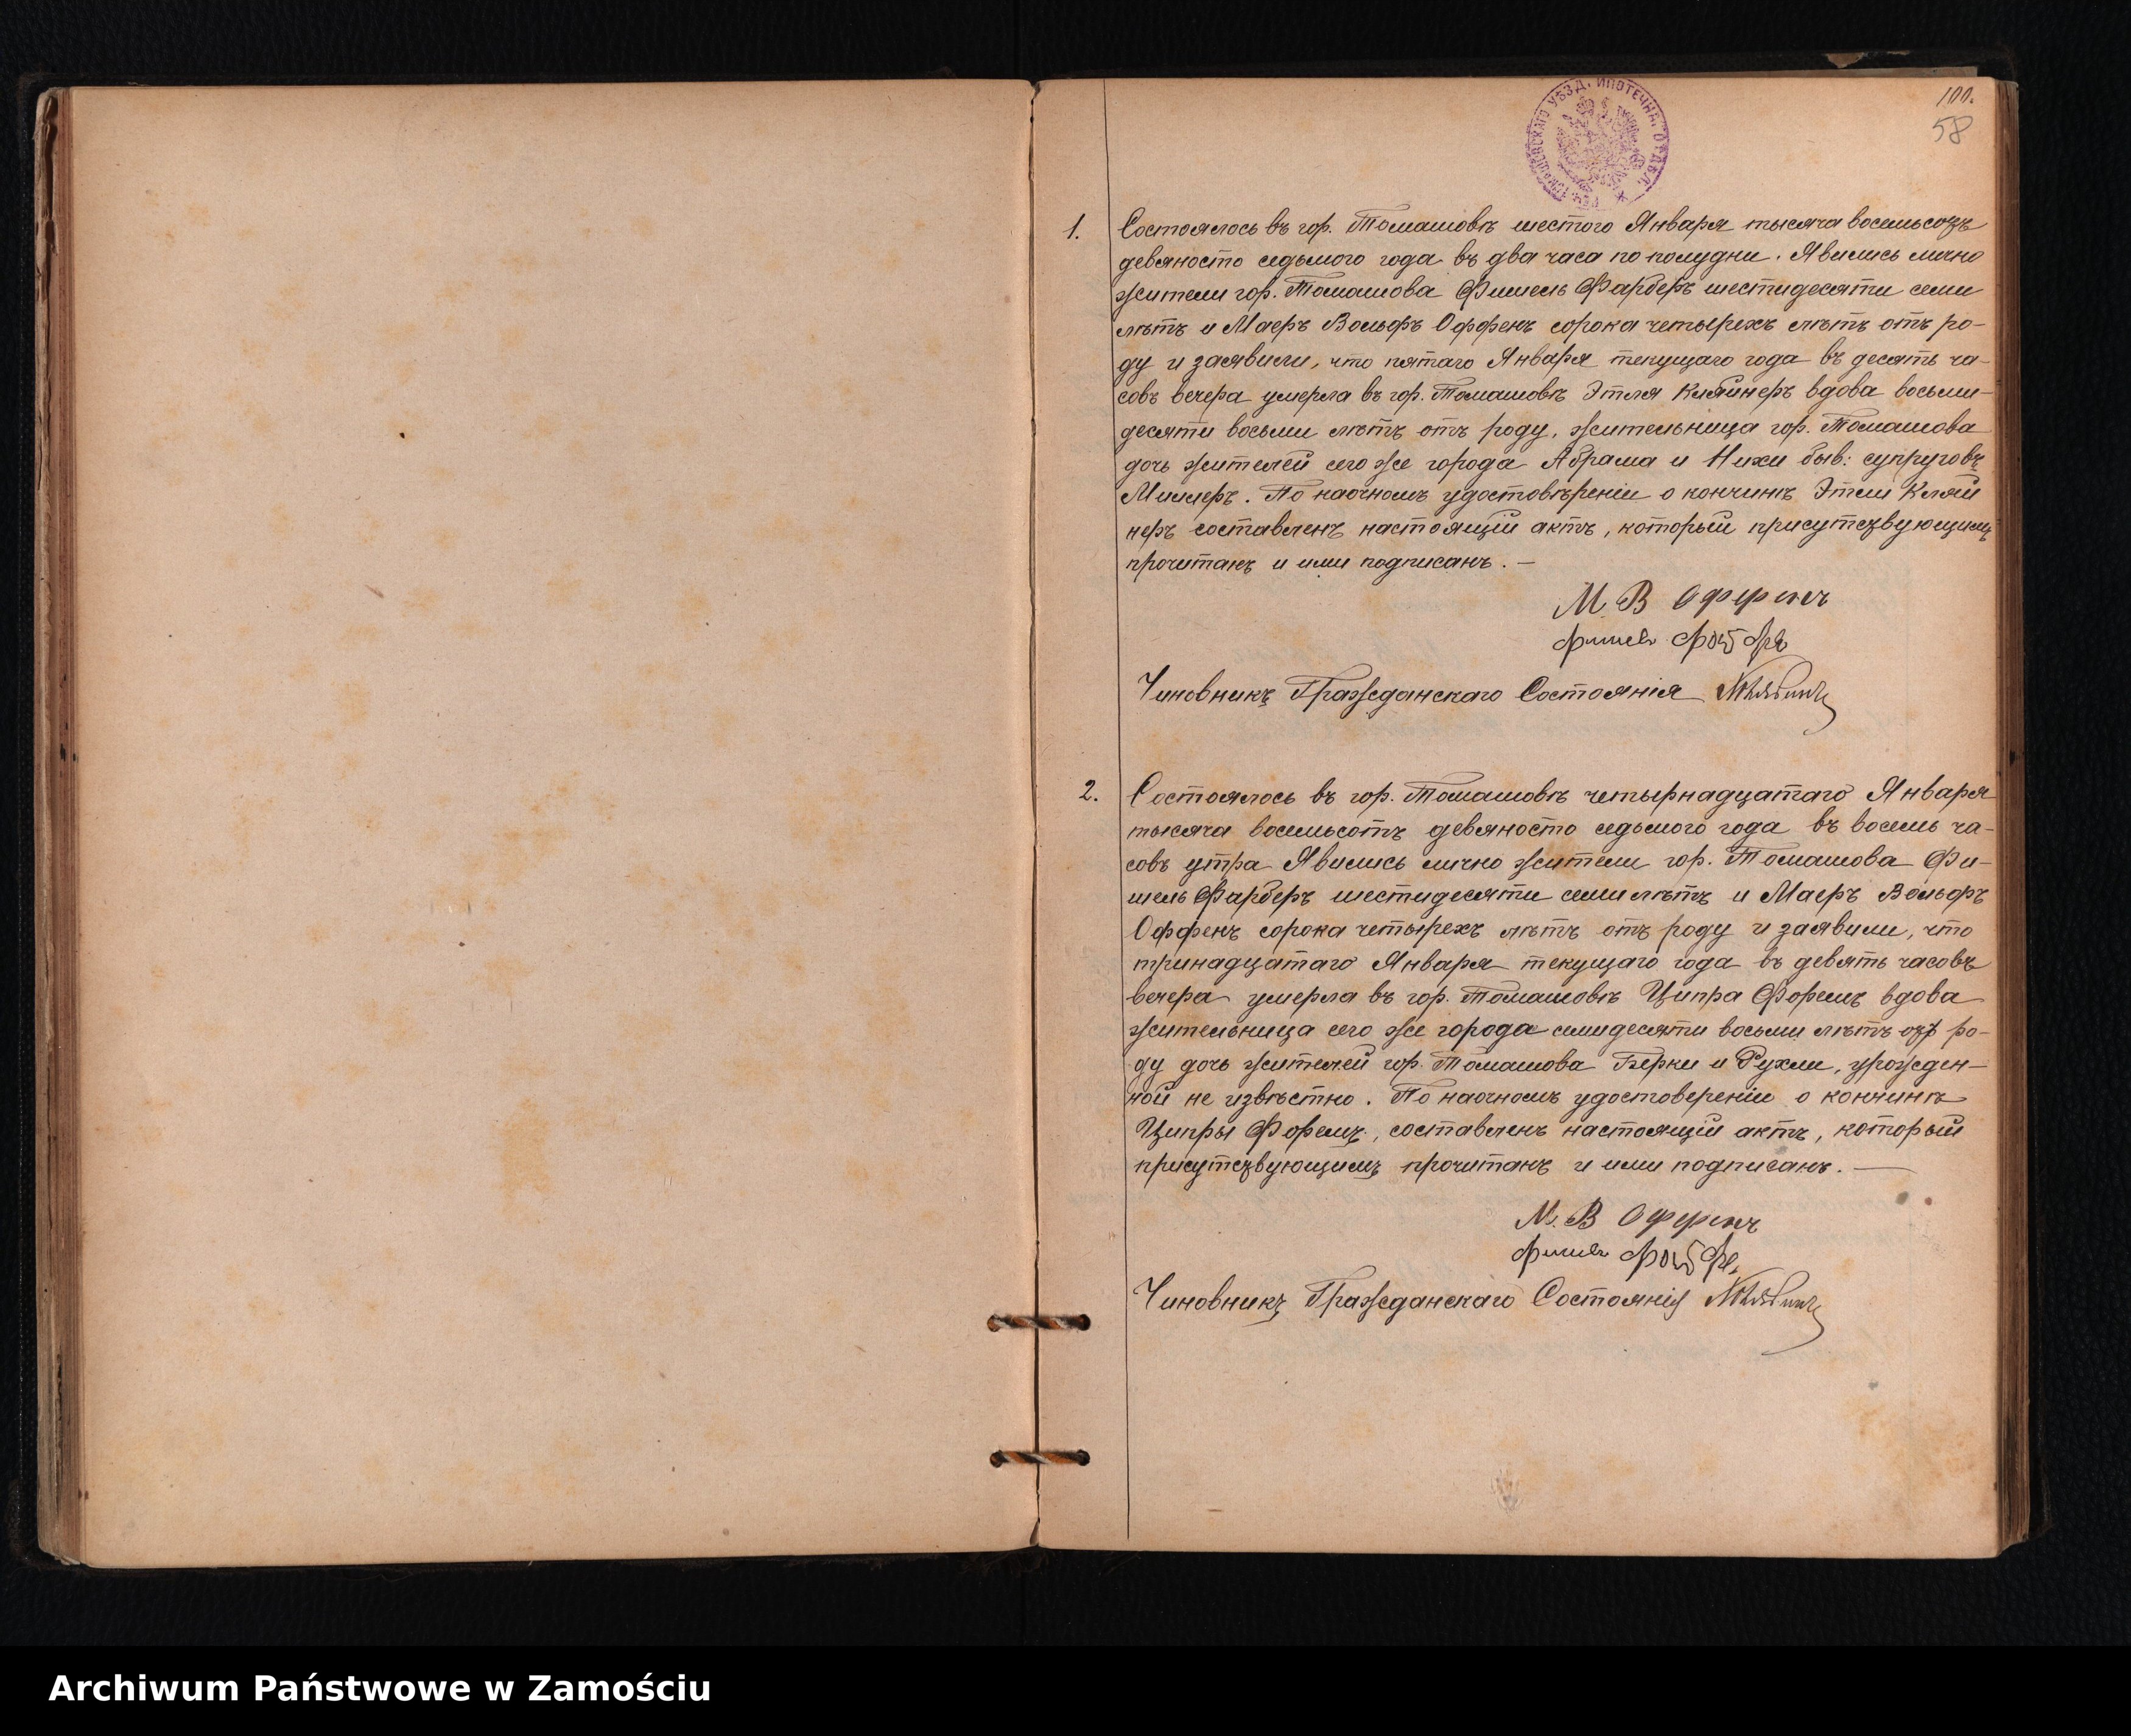 100.
58
УѢЗД. ИПОТЕЧН. ОТДѢЛ.
1. Состоялось въ гор. Томашовѣ шестого Января тысяча восемьсотъ
девяносто седьмого года въ два часа по полудни. Явились лично
жители гор. Томашова Фишель Фарберъ шестидесяти семи
лѣтъ и Маеръ Вольфъ Оффенъ сорока четырехъ лѣтъ отъ ро-
ду и заявили, что пятаго Января текущаго года въ десять ча-
совъ вечера умерла въ гор. Томашовѣ Этля Кляйнеръ вдова восьми-
десяти восьми лѣтъ отъ роду, жительница гор. Томашова
дочь жителей сего же города Абрама и Нихи быв: супруговъ
Миллеръ. По наочномъ удостовѣреніи о кончинѣ Этли Кляй
неръ составленъ настоящій актъ, который присутствующимъ
прочитанъ и ими подписанъ. —
М. В Оффенъ
Фишель Фарберъ
Чиновникъ Гражданскаго Состоянія
2. Состоялось въ гор. Томашовѣ четырнадцатаго Января
тысяча восемьсотъ девяносто седьмого года въ восемь ча-
совъ утра Явились лично жители гор. Томашова Фи-
шель Фарберъ шестидесяти семи лѣтъ и Маеръ Вольфъ
Оффенъ сорока четырехъ лѣтъ отъ роду и заявили, что
тринадцатаго Января текущаго года въ девять часовъ
вечера умерла въ гор. Томашовѣ Ципра Форемъ вдова
жительница сего же города семидесяти восьми лѣтъ отъ ро-
ду дочь жителей гор. Томашова Берки и Рухли, урожден-
ной не извѣстно. По наочномъ удостовереніи о кончинѣ
Ципры Форемъ, составленъ настоящій актъ, который
присутствующимъ прочитанъ и ими подписанъ. —
М. В Оффенъ
Фишель Фарбе.
Чиновникъ Гражданскаго Состоянія
Archiwum Państwowe w Zamościu